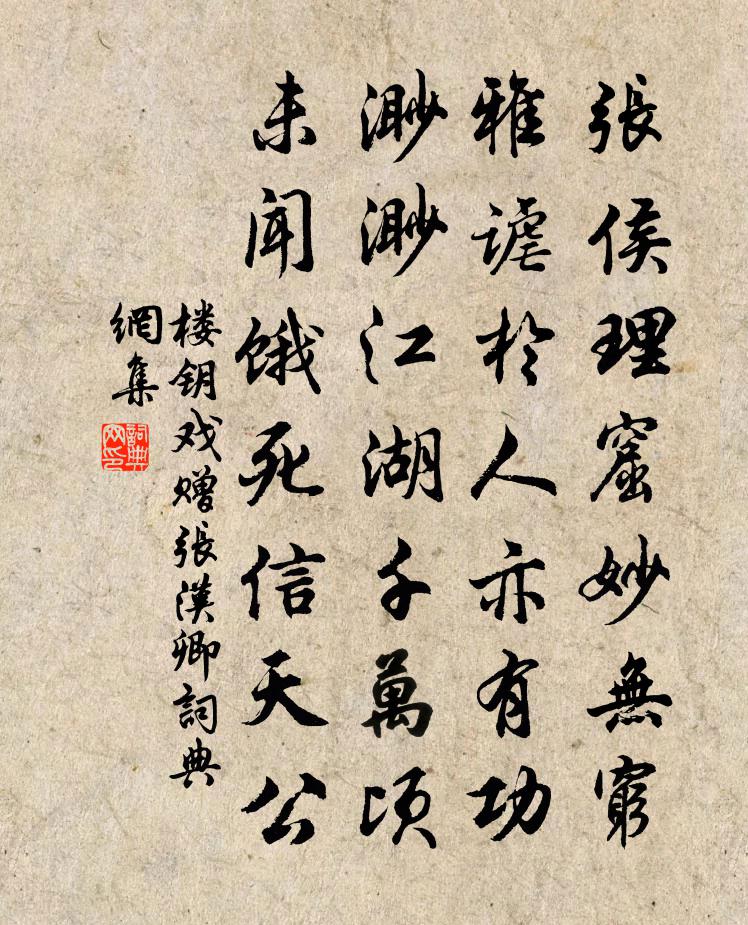 張侯理窟妙無窮
雅謔於人亦有功
渺渺江湖千萬頃
未聞餓死信天公
楼钥戏赠張漢卿詞典
網集
詞典
网印